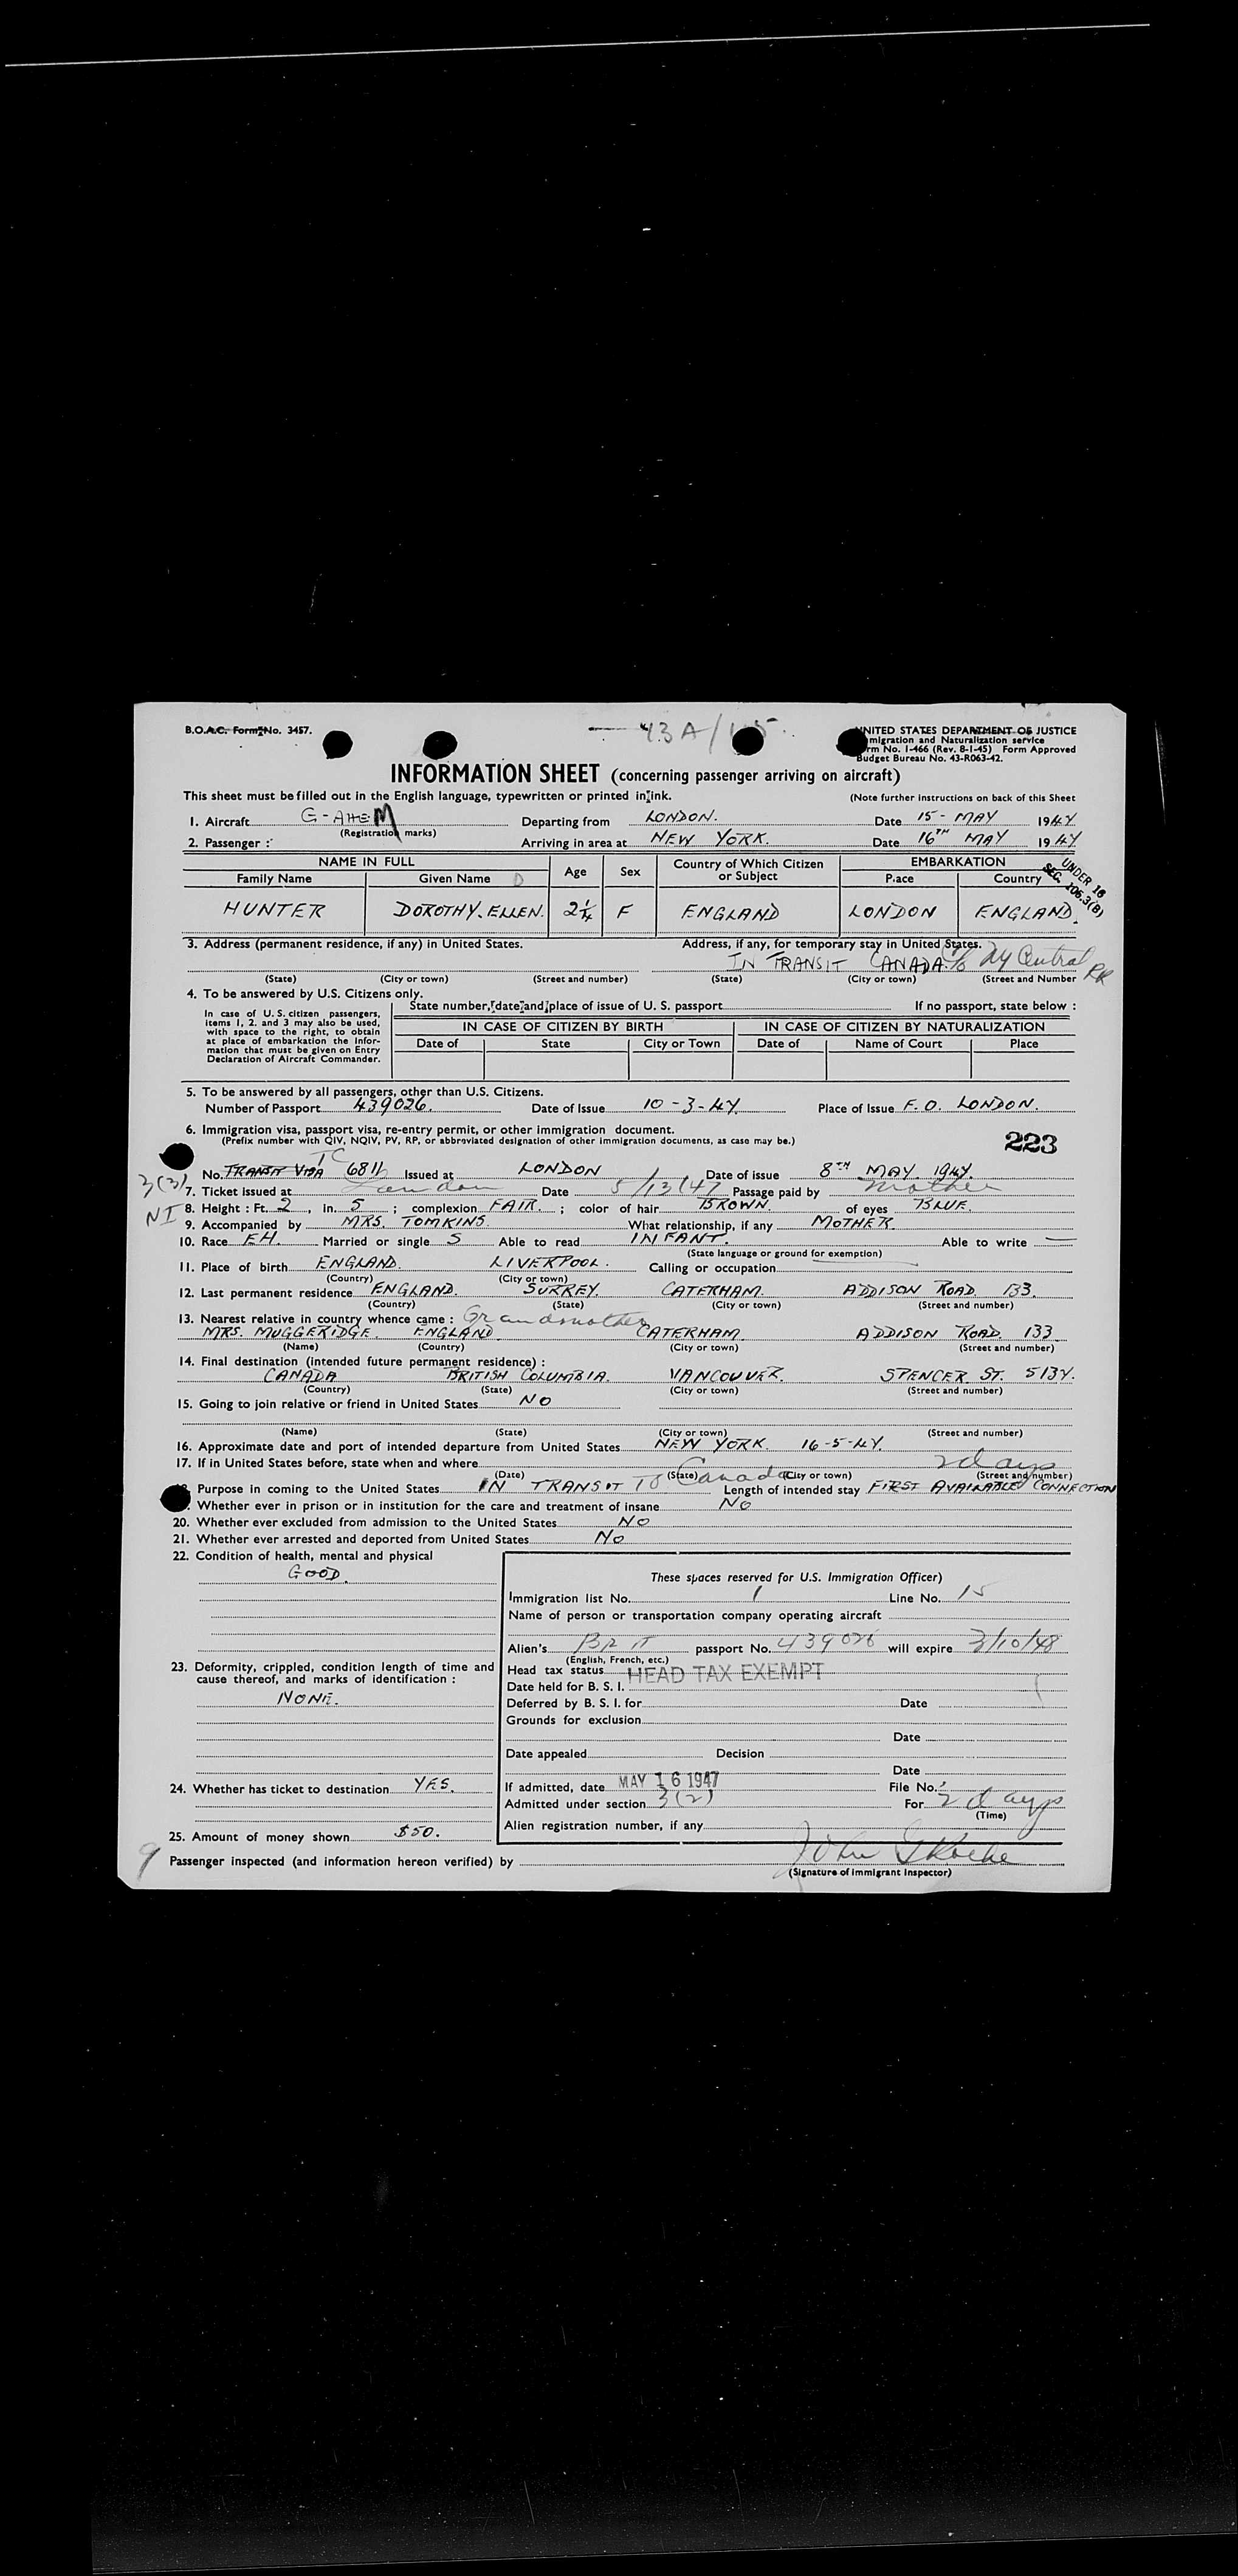 B.O.A.C. Form No. 3457.
43A/
UNITED STATES DEPARTMENT OF JUSTICE
mmigration and Naturalization service
rm No. I-466 (Rev. 8-1-45) Form Approved
Budget Bureau No. 43-R063-42.
INFORMATION SHEET (concerning passenger arriving on aircraft)
This sheet must be filled out in the English language, typewritten or printed in ink. (Note further instructions on back of this Sheet
1. Aircraft G-AHEM Departing from LONDON. Date 15 - MAY 1947
(Registration marks)
2. Passenger : Arriving in area at NEW YORK. Date 16TH MAY 1947
NAME IN FULL Age Sex Country of Which Citizen or Subject EMBARKATION
Family Name Given Name Place Country
UNDER 16
SEC. 106.3(B)
HUNTER DOROTHY. ELLEN. 2¼ F ENGLAND LONDON ENGLAND.
3. Address (permanent residence, if any) in United States. Address, if any, for temporary stay in United States.
IN TRANSIT CANADA. % NY Central RR
(State) (City or town) (Street and number) (State) (City or town) (Street and Number
4. To be answered by U.S. Citizens only.
In case of U.S. citizen passengers, items 1, 2. and 3 may also be used, with space to the right, to obtain at place of embarkation the information that must be given on Entry Declaration of Aircraft Commander.
State number, date and place of issue of U. S. passport If no passport, state below :
IN CASE OF CITIZEN BY BIRTH IN CASE OF CITIZEN BY NATURALIZATION
Date of State City or Town Date of Name of Court Place
5. To be answered by all passengers, other than U.S. Citizens.
Number of Passport 439026. Date of Issue 10-3-47 Place of Issue F.O. LONDON.
6. Immigration visa, passport visa, re-entry permit, or other immigration document.
(Prefix number with QIV, NQIV, PV, RP, or abbreviated designation of other immigration documents, as case may be.)
223
TC
No. TRANSIT VISA 6811 Issued at LONDON Date of issue 8TH MAY 1947.
3(2)
7. Ticket issued at London Date 5/13/47 Passage paid by mother
NI
8. Height : Ft. 2, In. 5 ; complexion FAIR. ; color of hair BROWN. of eyes BLUE.
9. Accompanied by MRS. TOMKINS. What relationship, if any MOTHER.
10. Race EH. Married or single S Able to read INFANT. Able to write —
(State language or ground for exemption)
11. Place of birth ENGLAND. LIVERPOOL. Calling or occupation
(Country) (City or town)
12. Last permanent residence ENGLAND. SURREY. CATERHAM. ADDISON ROAD. 133.
(Country) (State) (City or town) (Street and number)
13. Nearest relative in country whence came : Grandmother
MRS. MUGGERIDGE. ENGLAND CATERHAM. ADDISON ROAD. 133
(Name) (Country) (City or town) (Street and number)
14. Final destination (intended future permanent residence) :
CANADA BRITISH COLUMBIA. VANCOUVER. SPENCER ST. 5137.
(Country) (State) (City or town) (Street and number)
15. Going to join relative or friend in United States NO
(Name) (State) (City or town) (Street and number)
16. Approximate date and port of intended departure from United States NEW YORK. 16-5-47.
17. If in United States before, state when and where 2 days
(Date) (State) (City or town) (Street and number)
Purpose in coming to the United States IN TRANSIT TO Canada Length of intended stay FIRST AVAILABLE CONNECTION
Whether ever in prison or in institution for the care and treatment of insane NO
20. Whether ever excluded from admission to the United States NO
21. Whether ever arrested and deported from United States NO
22. Condition of health, mental and physical
GOOD.
These spaces reserved for U.S. Immigration Officer)
Immigration list No. 1 Line No. 15
Name of person or transportation company operating aircraft
Alien's BRIT passport No. 439026 will expire 3/10/48
(English, French, etc.)
23. Deformity, crippled, condition length of time and cause thereof, and marks of identification :
NONE.
Head tax status HEAD TAX EXEMPT
Date held for B. S. I.
Deferred by B. S. I. for Date
Grounds for exclusion
Date
Date appealed Decision
Date
24. Whether has ticket to destination YES.
If admitted, date MAY 16 1947 File No.
Admitted under section 3(2) For 2 days
(Time)
Alien registration number, if any
25. Amount of money shown $50.
9
Passenger inspected (and information hereon verified) by John
(Signature of Immigrant Inspector)